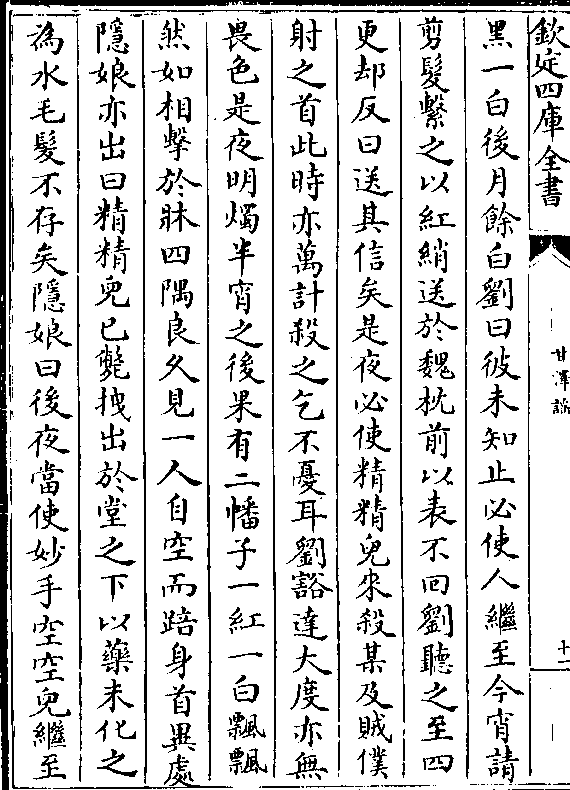 欽定四庫全書
甘澤謠
十一
黑一白後月餘白劉曰彼未知止必使人繼至今宵請
剪髮繫之以紅綃送於魏枕前以表不回劉聽之至四
更却反曰送其信矣是夜必使精精兒来殺某及賊僕
射之首此時亦萬計殺之乞不憂耳劉豁達大度亦無
畏色是夜明燭半宵之後果有二幡子一紅一白飄飄
然如相擊於牀四隅良久見一人自空而踣身首異處
隱娘亦出曰精精兒已斃拽出於堂之下以藥末化之
為水毛髮不存矣隱娘曰後夜當使妙手空空兒繼至